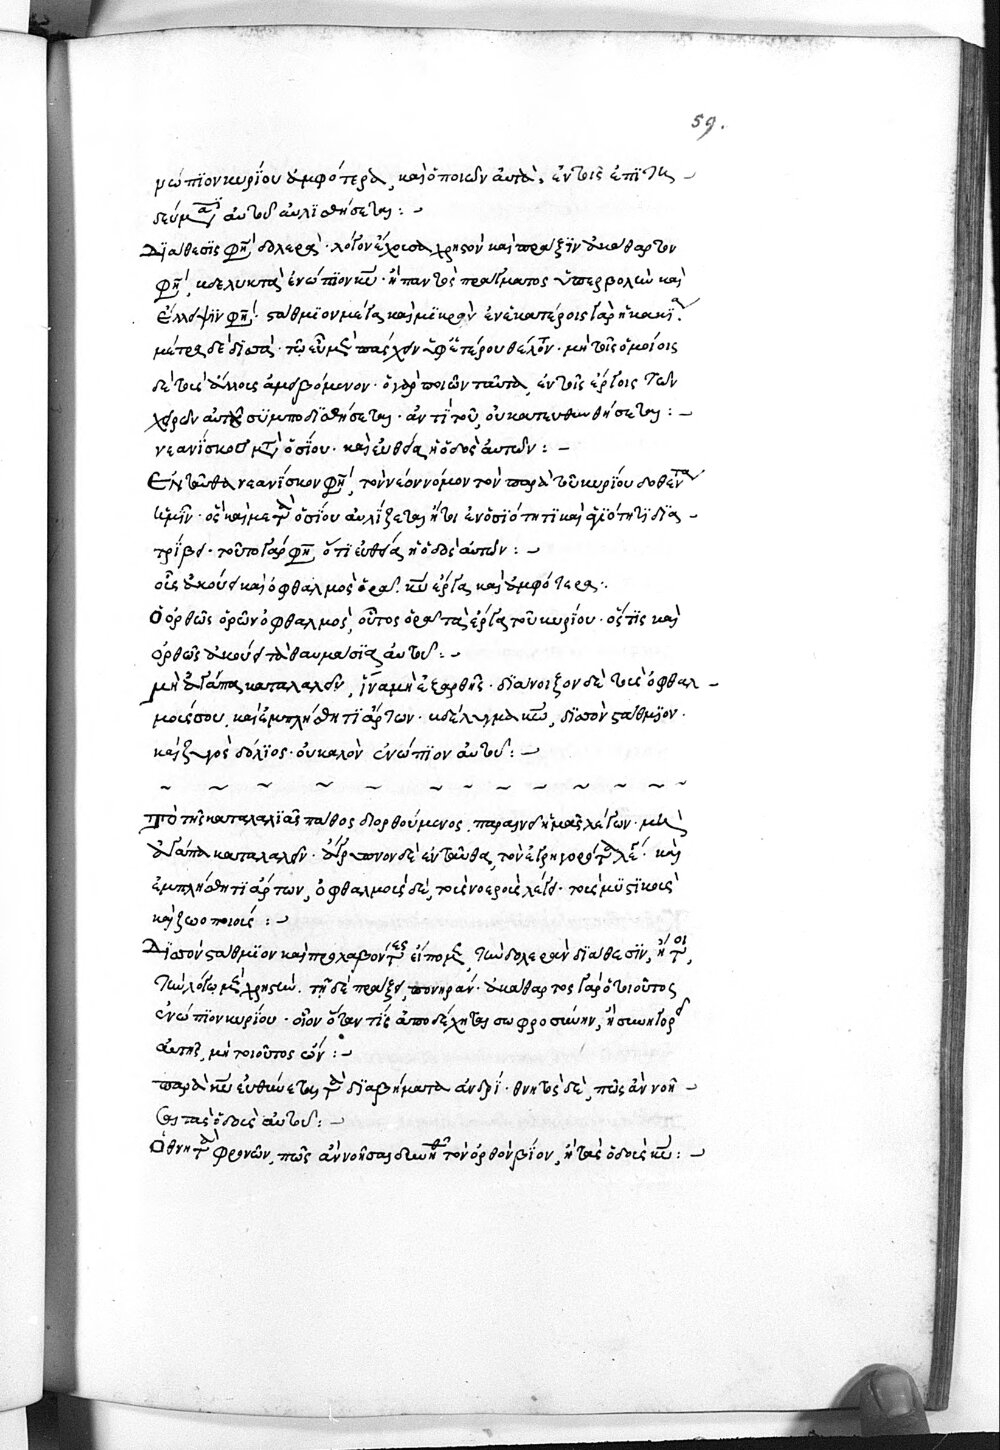 59.
νώπιον κυρίου ἀμφότερα, καὶ ὁ ποιῶν αὐτὰ, ἐν τοῖς ἐπιτη
δεύμασι αὐτοῦ αὐλισθήσεται :
Διάθεσις φησὶ δολερὰ · λόγον ἔχουσα χρηστὸν καὶ πρᾶξιν ἀκάθαρτον
φησὶ, βδελυκτὰ ἐνώπιον κυ · ἡ παντὸς πράγματος ὑπερβολὴν καὶ
ἔλλειψιν φησὶ · στάθμιον μέγα καὶ μικρὸν ἐν ἑκατέροις γὰρ ἡ κακία.
μέτρα δὲ δισσὰ · τὸ εὖ μὲν πάσχειν ὑφ' ἑτέρου θέλον · μὴ τοῖς ὁμοίοις
δὲ τοὺς ἄλλους ἀμειβόμενον · ὁ γὰρ ποιῶν ταῦτα, ἐν τοῖς ἔργοις τῶν
χειρῶν αὐτοῦ συμποδισθήσεται · ἀντὶ τοῦ, οὐ κατευθυνθήσεται :
νεανίσκος μετὰ ὁσίου · καὶ εὐθεῖα ἡ ὁδὸς αὐτῶν :
Ἐνταῦθα νεανίσκον φησὶ, τὸν νέον νόμον τὸν παρὰ τοῦ κυρίου δοθέντα
ἡμῖν · ὃς καὶ μετὰ ὁσίου αὐλίζεται ἤτοι ἐν ὁσιότητι καὶ ἁγιότητι δια
τρίβει · τοῦτο γάρ φησι ὅτι εὐθεῖα ἡ ὁδὸς αὐτῶν :
οὖς ἀκούει καὶ ὀφθαλμὸς ὁρᾷ · κυ ἔργα καὶ ἀμφότερα :
Ὁ ὀρθῶς ὁρῶν ὀφθαλμὸς, οὗτος ὁρᾷ τὰ ἔργα τοῦ κυρίου · ὅστις καὶ
ὀρθῶς ἀκούει τὰ θαυμάσια αὐτοῦ :
μὴ ἀγάπα καταλαλεῖν, ἵνα μὴ ἐξαρθῇς · διάνοιξον δὲ τοὺς ὀφθαλ
μούς σου, καὶ ἐμπλήσθητι ἄρτων · βδέλυγμα κω, δισσὸν στάθμιον ·
καὶ ζυγὸς δόλιος · οὐ καλὸν ἐνώπιον αὐτοῦ :
Τὸ τῆς καταλαλιᾶς πάθος διορθούμενος, παραινεῖ ἡμᾶς λέγων · μὴ
ἀγάπα καταλαλεῖν · ἄγρυπνον δὲ ἐνταῦθα, τὸν ἐγρηγορότα λέγει · καὶ
ἐμπλήσθητι ἄρτων, ὀφθαλμοὺς δὲ, τοὺς νοεροὺς λέγει · τοὺς μυστικοὺς
καὶ ζωοποιούς :
Δισσὸν στάθμιον καὶ προλαβόντες εἴπομεν, τὴν δολερὰν διάθεσιν, ἤτοι,
τὴν λόγῳ μὲν χρηστὴν. τῇ δὲ πράξει, πονηράν · ἀκάθαρτος γὰρ ὁ τοιοῦτος
ἐνώπιον κυρίου · οἷον ὅταν τίς ἀποδέχηται σωφροσύνην, ἢ συνηγορεῖ
αὐτῆς, μὴ τοιοῦτος ὤν :
παρὰ κυ εὐθύνεται τὰ διαβήματα ἀνδρί · θνητὸς δὲ, πῶς ἂν νοή
σαι τὰς ὁδοὺς αὐτοῦ :
Ὁ θνητὰ φρονῶν, πῶς ἂν νοῆσαι δυνηθῇ τὸν ὀρθὸν βίον, ἢ τὰς ὁδοὺς κυ :